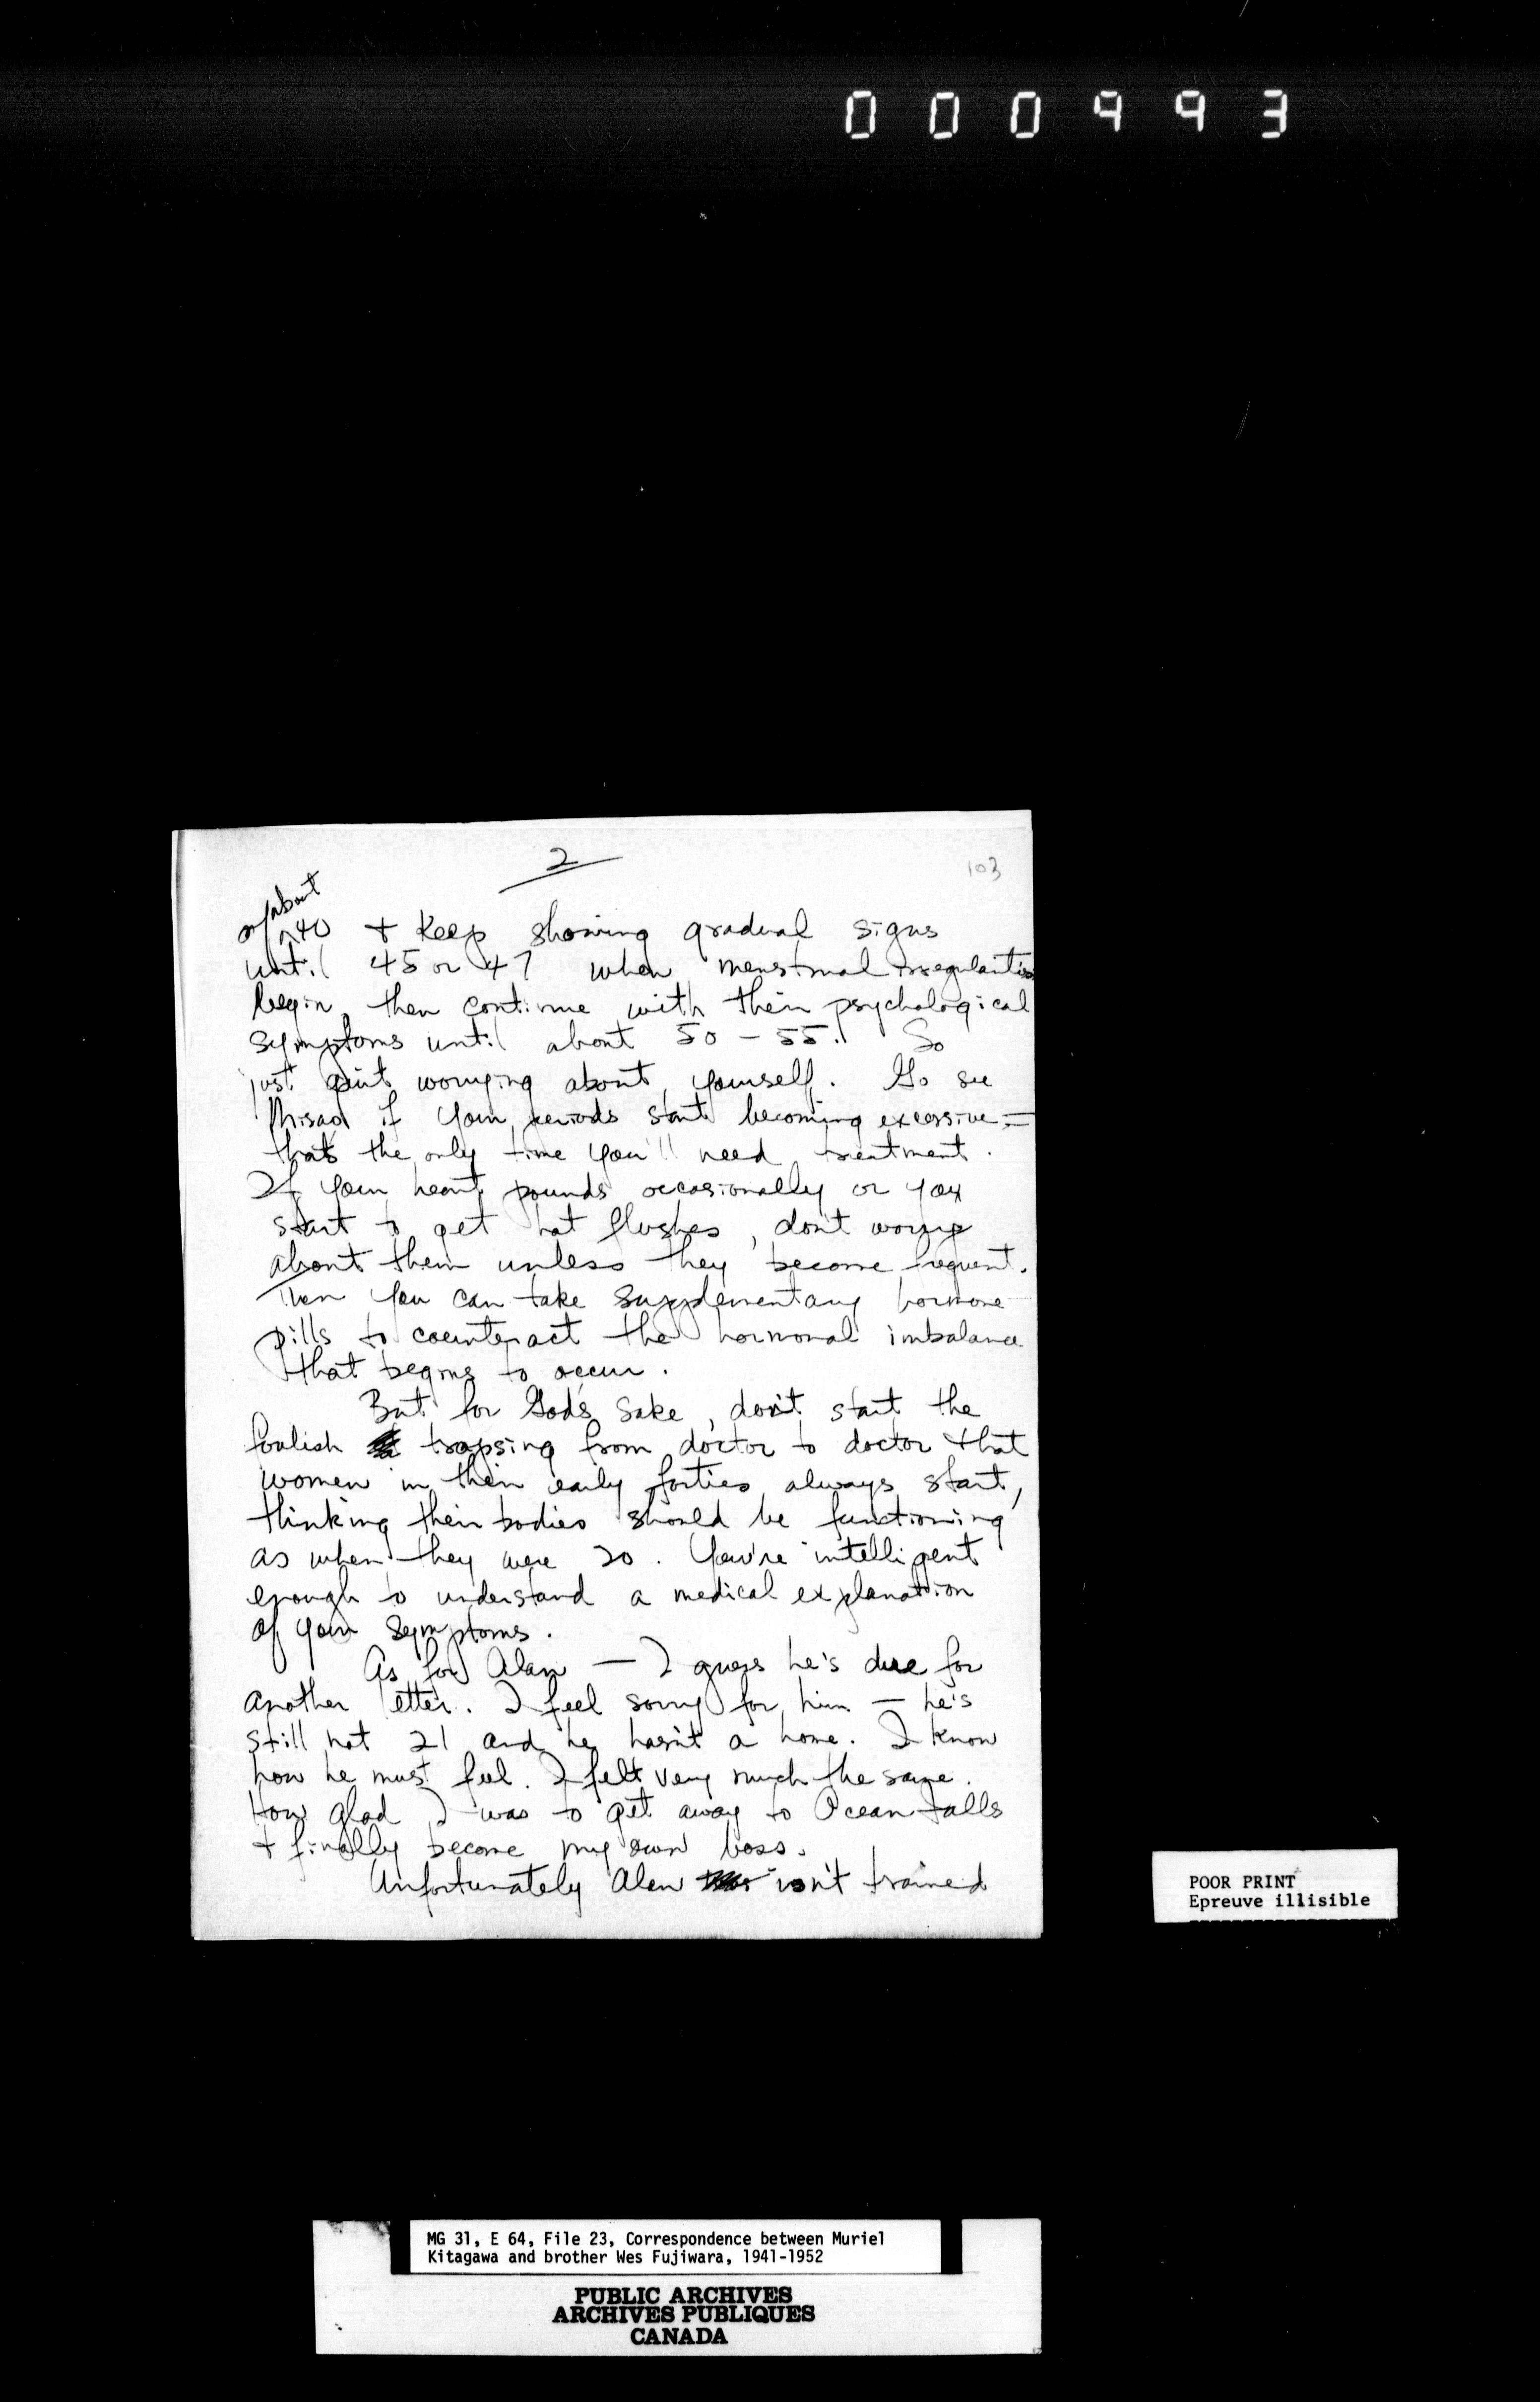 000993
2
103
or about
40 + keep showing gradual signs
until 45 or 47 when menstrual irregularities
begin, then continue with their psychological
symptoms until about 50 - 55. So
just quit worrying about yourself. Go see
Misao if your periods start becoming excessive —
that's the only time you'll need treatment.
If your heart pounds occasionally or you
start to get hot flushes, don't worry
about them unless they become frequent.
Then you can take supplementary hormone
pills to counteract the hormonal imbalance
that begins to occur.
But for God's sake, don't start the
foolish trapsing from doctor to doctor that
women in their early forties always start,
thinking their bodies should be functioning
as when they were 20. You're intelligent
enough to understand a medical explanation
of your symptoms.
As for Alan — I guess he's due for
another letter. I feel sorry for him — he's
still not 21 and he hasn't a home. I know
how he must feel. I felt very much the same.
How glad I was to get away to Ocean Falls
+ finally become my own boss.
Unfortunately Alan isn't trained
POOR PRINT
Epreuve illisible
MG 31, E 64, File 23, Correspondence between Muriel
Kitagawa and brother Wes Fujiwara, 1941-1952
PUBLIC ARCHIVES
ARCHIVES PUBLIQUES
CANADA